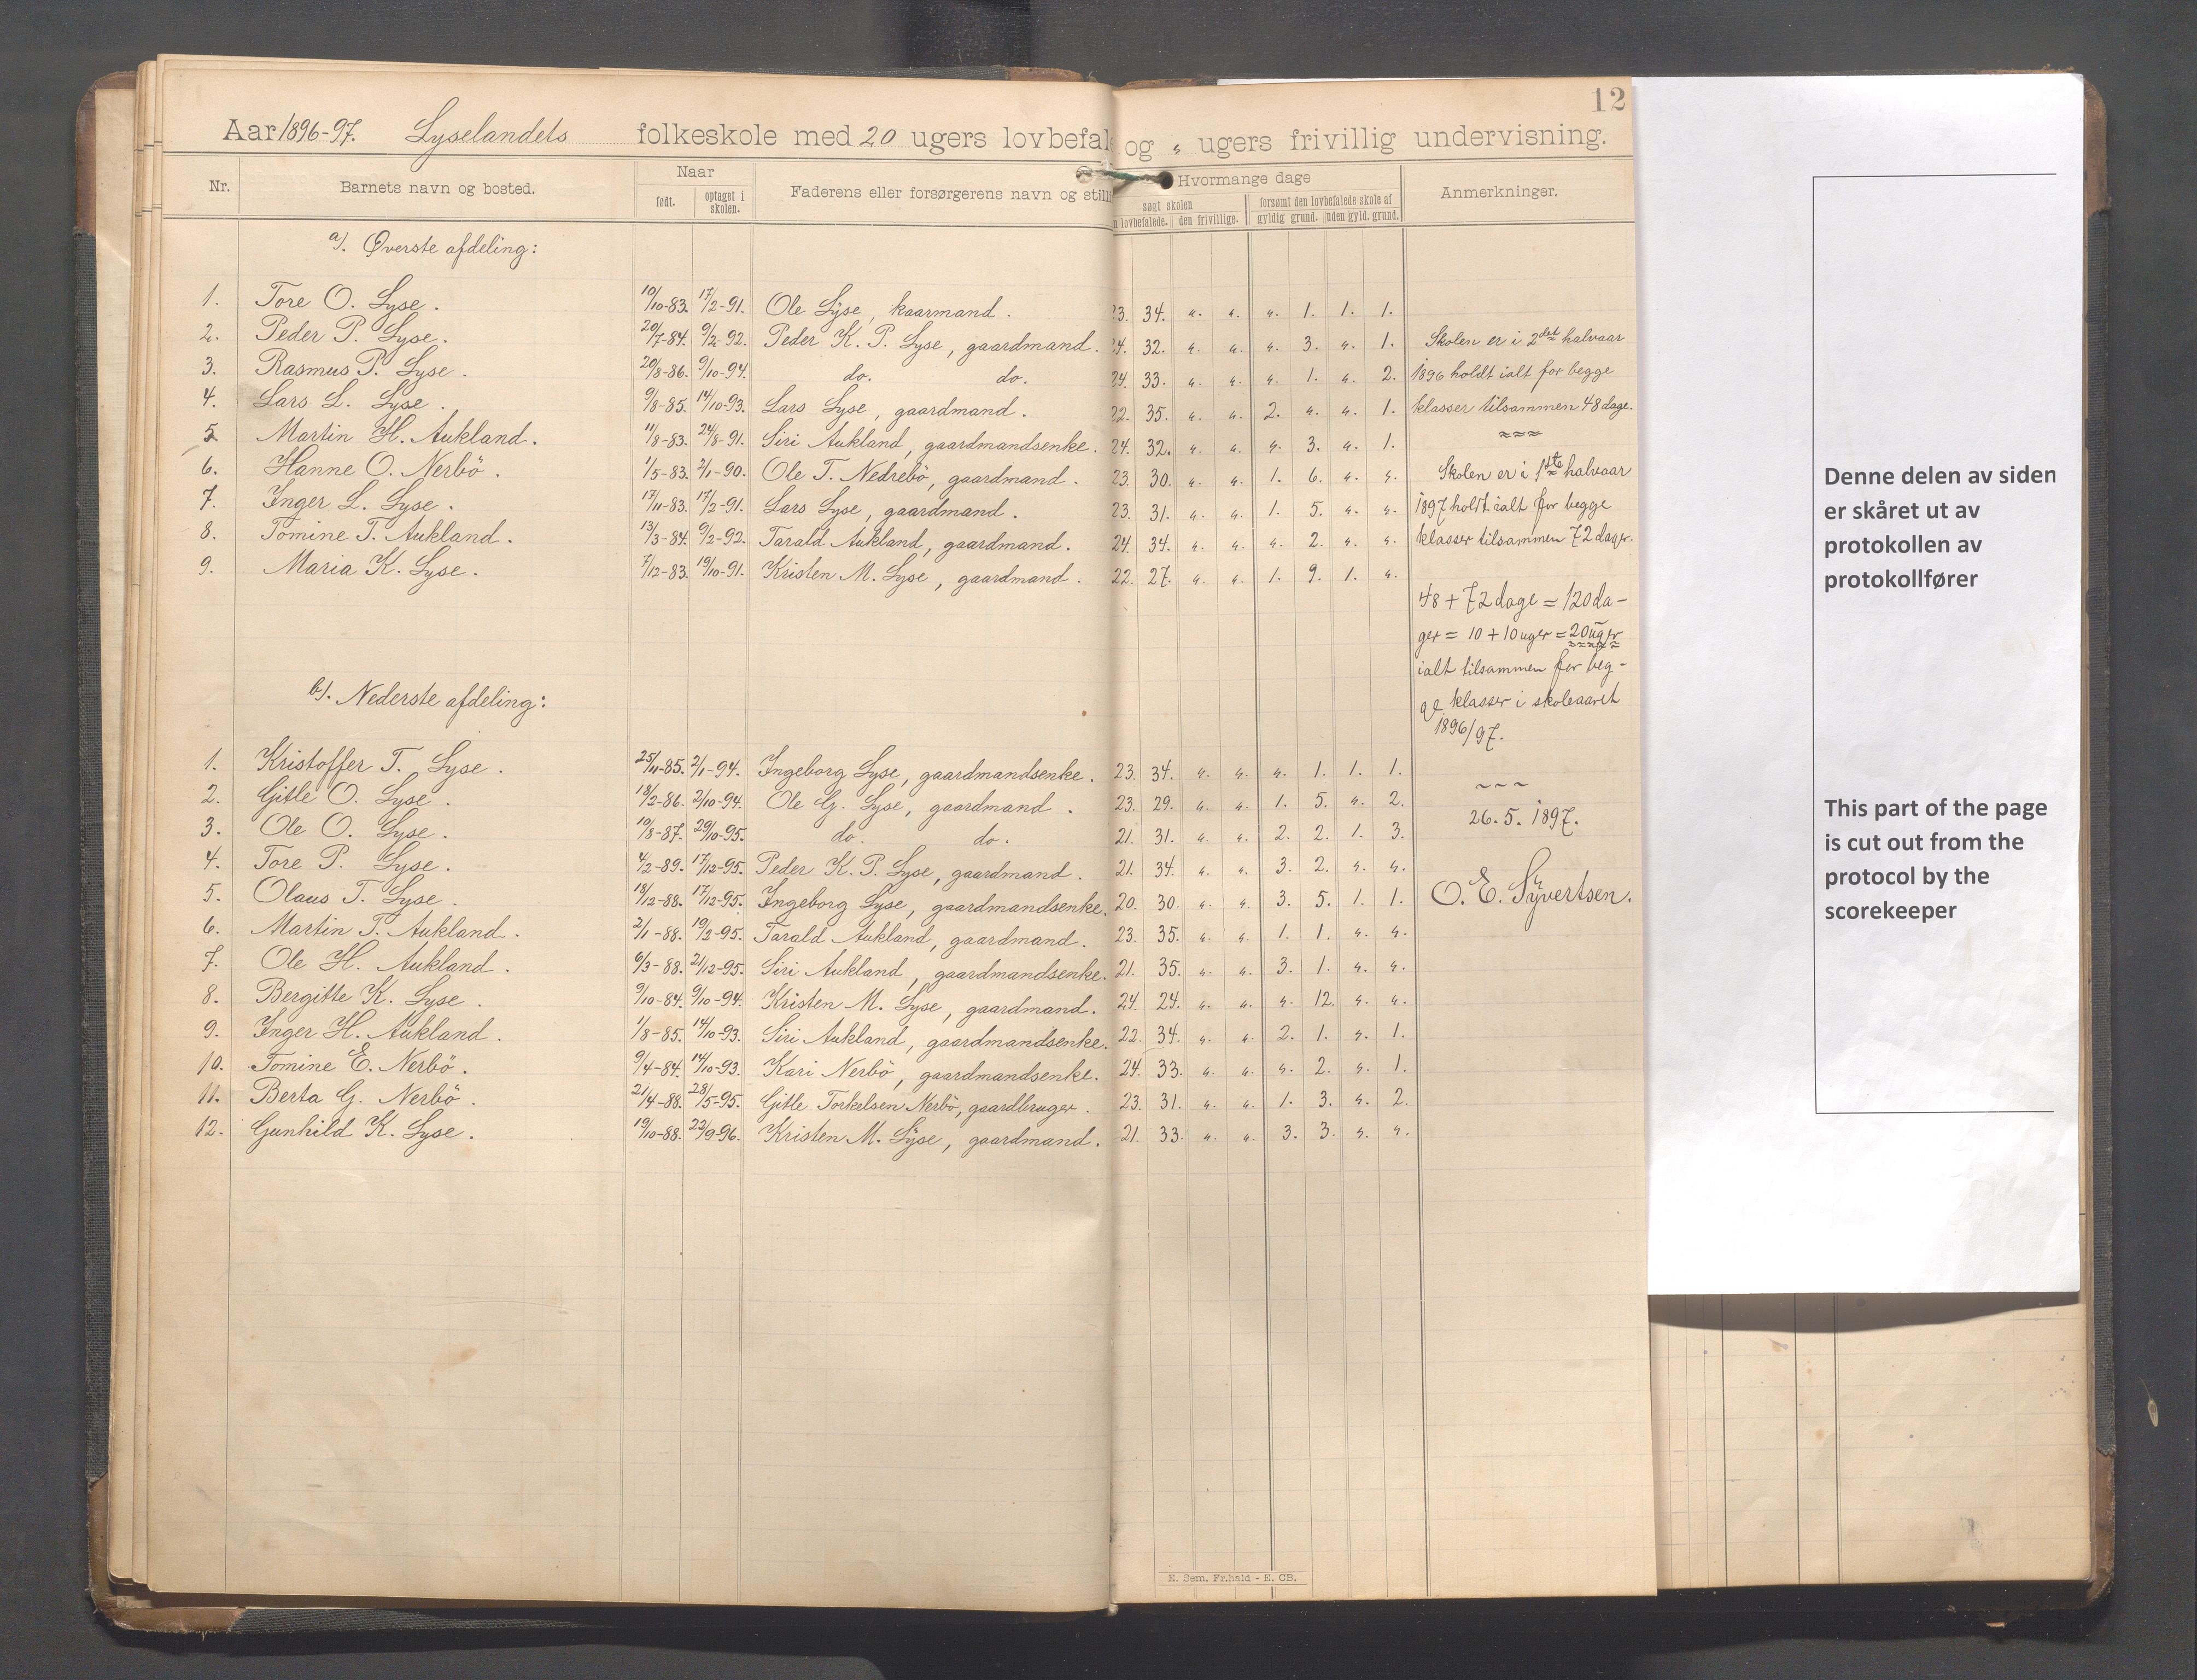 12
Aar 1896-97. Lyselandets folkeskole med 20 ugers lovbefal og " ugers frivillig undervisning.
Nr. Barnets navn og bosted. Naar Faderens eller forsørgerens navn og still Hvormange dage Anmerkninger.
født. optaget i skolen. søgt skolen forsømt den lovbefalede skole af
n lovbefalede. den frivillige. gyldig grund. uden gyld. grund.
a). Øverste afdeling:
1. Tore O. Lyse. 10/10-83. 17/2-91. Ole Lyse, kaarmand. 23. 34. " " " 1. 1. 1.
2. Peder P. Lyse. 20/7-84. 9/2-92. Peder K. P. Lyse, gaardmand. 24. 32. " " " 3. " 1. Skolen er i 2det halvaar
3. Rasmus P. Lyse. 20/8-86. 9/10-94. do. do. 24. 33. " " " 1. " 2. 1896 holdt ialt for begge
4. Lars L. Lyse. 9/8-85. 14/10-93. Lars Lyse, gaardmand. 22. 35. " " 2. " " 1. klasser tilsammen 48 dage.
5 Martin H. Aukland. 11/8-83. 24/8-91. Siri Aukland, gaardmandsenke. 24. 32. " " " 3. " 1.
6. Hanne O. Nerbö. 1/5-83. 2/1-90. Ole T. Nedrebö, gaardmand. 23. 30. " " 1. 6. " " Skolen er i 1ste halvaar
7. Inger L. Lyse. 17/11-83. 17/2-91. Lars Lyse, gaardmand. 23. 31. " " 1. 5. " " 1897 holdt ialt for begge
8. Tomine T. Aukland. 13/3-84. 9/2-92. Tarald Aukland, gaardmand. 24. 34. " " " 2. " " klasser tilsammen 72 dager.
9. Maria K. Lyse. 7/12-83. 19/10-91. Kristen M. Lyse, gaardmand. 22. 27. " " 1. 9. 1. "
48 + 72 dage = 120 da-
ger = 10 + 10 uger = 20 uger
ialt tilsammen for beg-
ge klasser i skoleaaret
1896/97.
b). Nederste afdeling:
1. Kristoffer T. Lyse. 25/11-85. 2/1-94. Ingeborg Lyse, gaardmandsenke. 23. 34. " " " 1. 1. 1.
2. Gitle O. Lyse. 18/2-86. 2/10-94. Ole G. Lyse, gaardmand. 23. 29. " " 1. 5. " 2. 26.5.1897.
3. Ole O. Lyse. 10/8-87. 29/10-95. do. do. 21. 31. " " 2. 2. 1. 3.
4. Tore P. Lyse. 4/2-89. 17/12-95. Peder K. P. Lyse, gaardmand. 21. 34. " " 3. 2. " "
5. Olaus T. Lyse. 18/12-88. 17/12-95. Ingeborg Lyse, gaardmandsenke. 20. 30. " " 3. 5. 1. 1. O. E. Syvertsen.
6. Martin T. Aukland. 2/1-88. 19/2-95. Tarald Aukland, gaardmand. 23. 35. " " 1. 1. " "
7. Ole H. Aukland. 6/3-88. 21/12-95. Siri Aukland, gaardmandsenke. 21. 35. " " 3. 1. " "
8. Bergitte K. Lyse. 9/10-84. 9/10-94. Kristen M. Lyse, gaardmand. 24. 24. " " " 12. " "
9. Inger H. Aukland. 1/8-85. 14/10-93. Siri Aukland, gaardmandsenke. 22. 34. " " 2. 1. " 1.
10. Tomine E. Nerbö. 9/4-84. 14/10-93. Kari Nerbö, gaardmandsenke. 24. 33. " " " 2. " 1.
11. Berta G. Nerbö. 21/4-88. 28/5-95. Gitle Torkelsen Nerbö, gaardbruger. 23. 31. " " 1. 3. " 2.
12. Gunhild K. Lyse. 19/10-88. 22/9-96. Kristen M. Lyse, gaardmand. 21. 33. " " 3. 3. " "
E. Sem. Fr.hald - E. CB.
Denne delen av siden
er skåret ut av
protokollen av
protokollfører
This part of the page
is cut out from the
protocol by the
scorekeeper